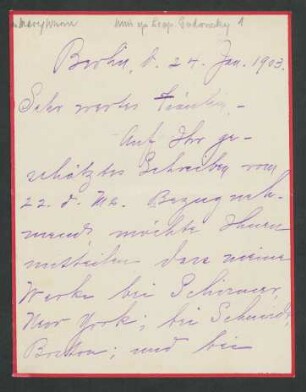 Berlin, d. 24. Jan. 1903.
Sehr wertes Fräulein,-
Auf Ihr ge-
schätztes Schreiben vom
22. d. Mts. Bezugneh-
mend, möchte Ihnen
mitteilen dass meine
Werke bei Schirmer,
New York; bei Schmidt,
Boston; und bei